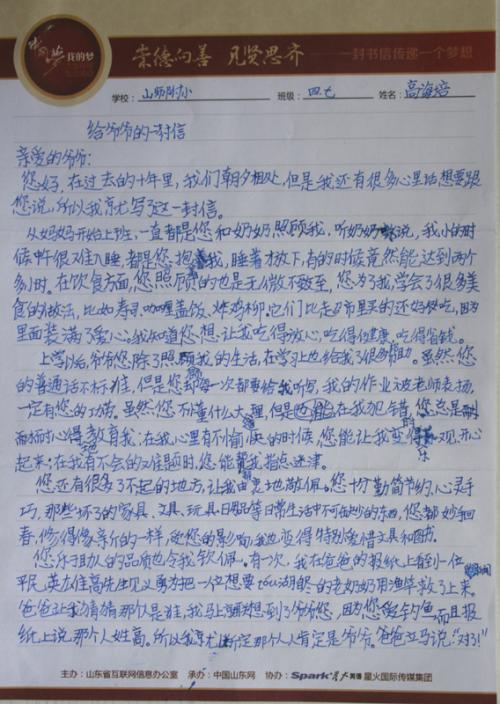 我的梦
崇德向善 见贤思齐 一封书信传递一个梦想
学校：山师附小 班级：四七 姓名：高海培
给爷爷的一封信
亲爱的爷爷：
您好，在过去的十年里，我们朝夕相处，但是我还有很多心里话想要跟
您说，所以我就写了这一封信。
从妈妈开始上班，一直都是您和奶奶照顾我，听奶奶说，我小的时
候午很难入睡，都是您抱着我，睡着才放下，有的时候竟然能达到两个
多小时。在饮食方面，您照顾的也是无微不至，您为了我，学会了很多美
食的做法，比如寿司、咖喱盖饭、炸鸡柳。它们比超市里买的还好吃，因为
里面装满了爱心；我知道您想让我吃得放心，吃得健康，吃得省钱。
上学以后，爷爷您除了照顾我的生活，在学习上也给了我很多帮助。虽然您
的普通话不标准，但是您却每一次都要给我听写，我的作业被老师表扬，
一定有您的功劳。虽然您不懂什么大理，但是在我犯错时，您总是耐
心地教育我；在我心里有不愉快的时候，您能让我变得乐观、开心
起来；在我有不会的难题时，您能帮我指点迷津。
您还有很多了不起的地方，让我由衷地敬佩。您十分勤简节约、心灵手
巧，那些坏了的家具、文具、玩具、日用品等日常生活中不可缺少的东西，您都妙手回
春，修得像新的一样，受您的影响，我也变得特别爱惜文具和图书。
您乐于助人的品质也令我钦佩。有一次，我在爸爸的报纸上看到一位
平民英雄高先生见义勇为把一位想要tou湖自尽的老奶奶用渔竿救了上来。
爸爸让我猜猜那个人是谁，我马上联想到了爷爷您，因为您爱钓鱼而且报
纸上说那个人姓高。所以我就断定那个人肯定是爷爷。爸爸立马说：“对了！”
主办：山东省互联网信息办公室 承办：中国山东网 协办：Spark星火英语 星火国际传媒集团